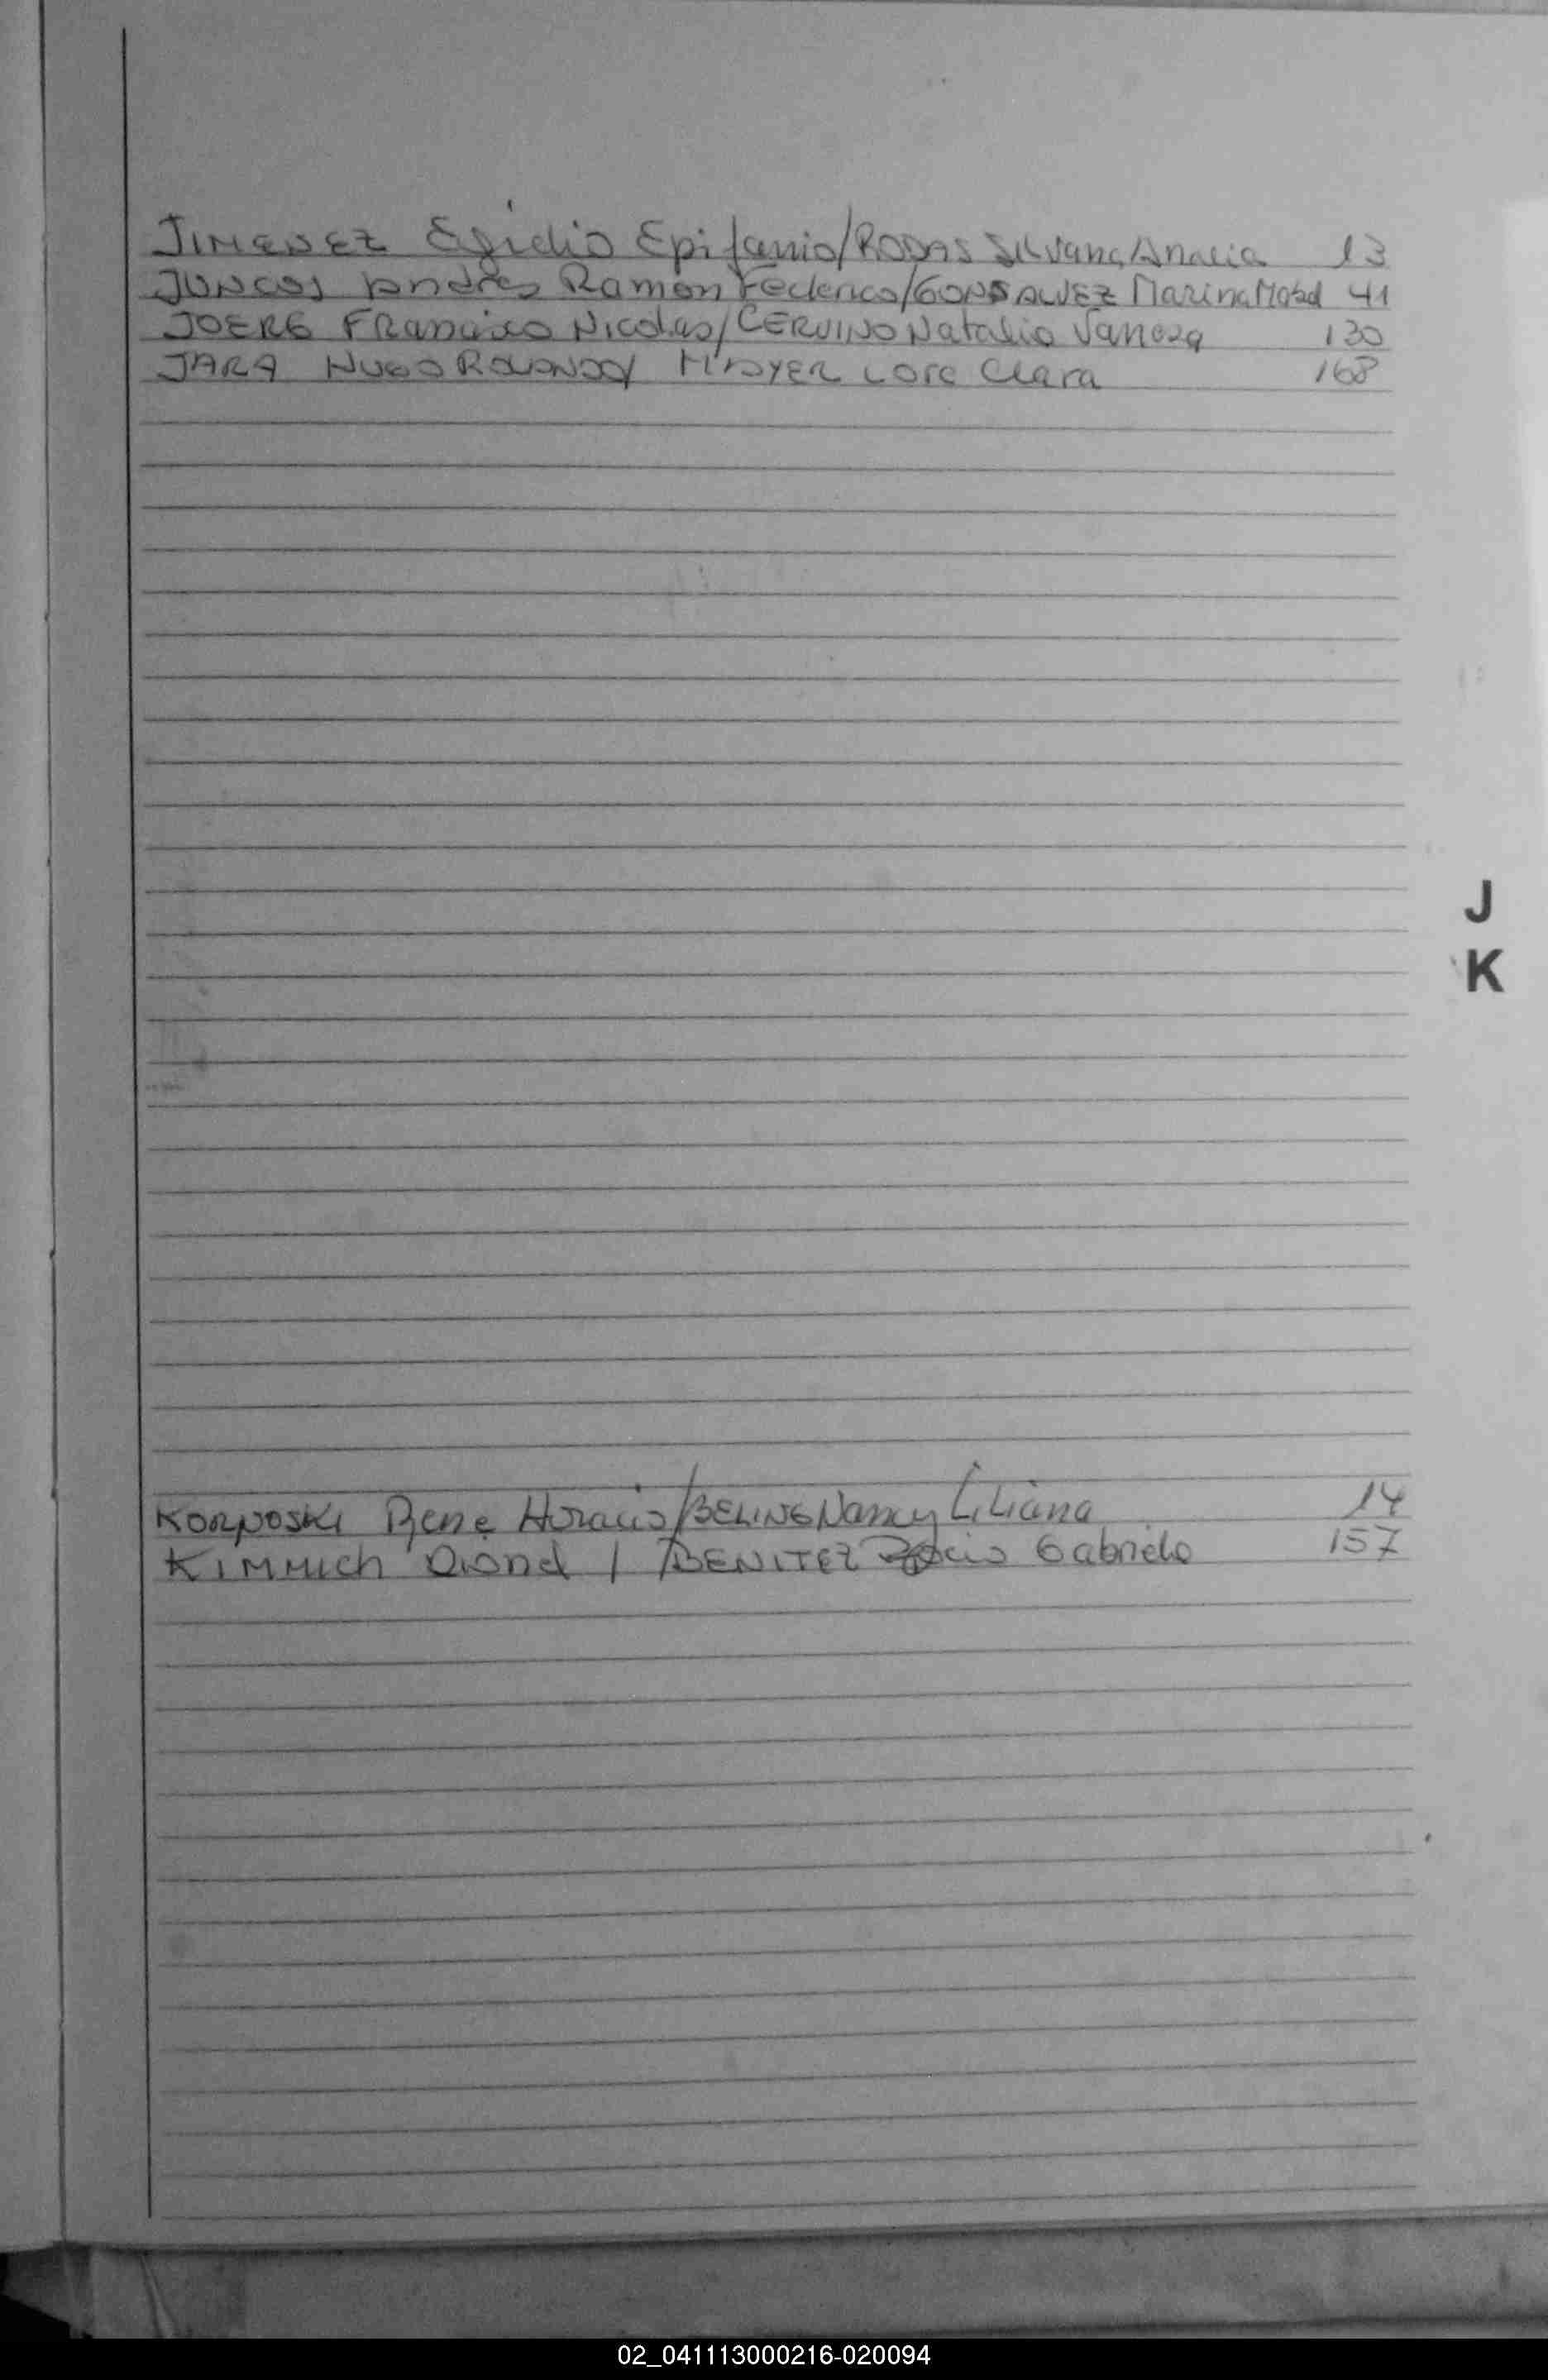 JIMENEZ Egidio Epifanio/RODAS Silvana Analia 13
JUNCOS Andres Ramon Federico/GONSALVEZ Marina Mabel 41
JOERG Francisco Nicolas/CERVINO Natalia Vanesa 130
JARA HUGO ROLANDO/ MAYER Lore Clara 168
J
K
KORNOSKI Rene Horacio/BELING Nancy Liliana 14
KIMMICH / BENITEZ Rocio Gabriela 157
02_041113000216-020094